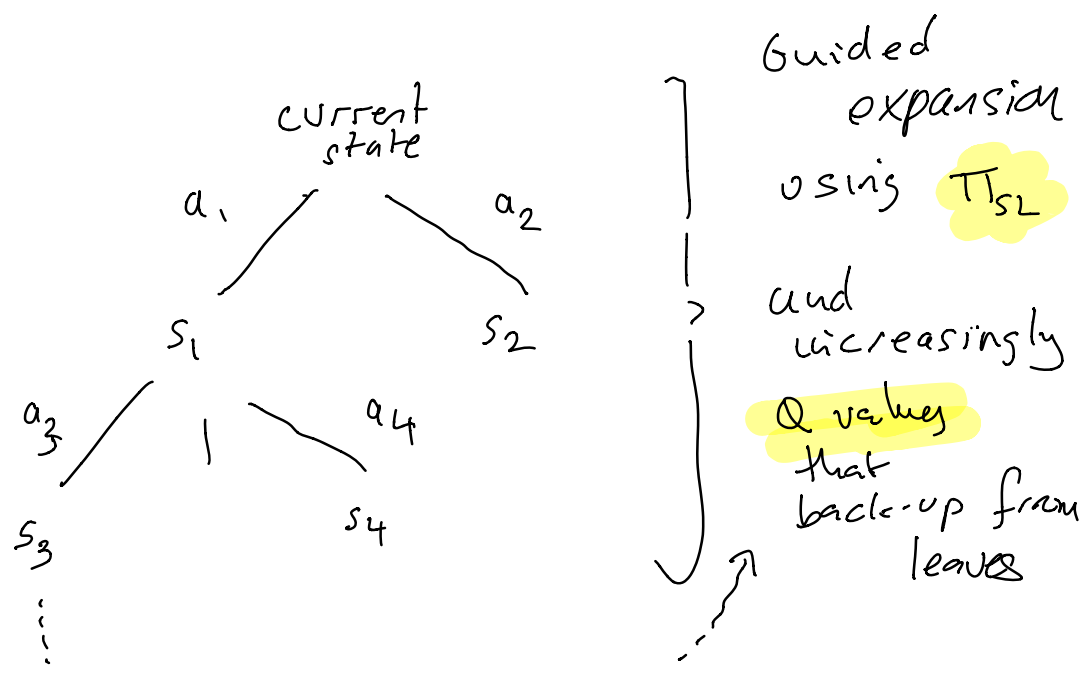 current
state
a₁
a₂
s₁
s₂
a₃
a₄
s₃
s₄
Guided
expansion
using π_SL
and
increasingly
Q values
that
back-up from
leaves